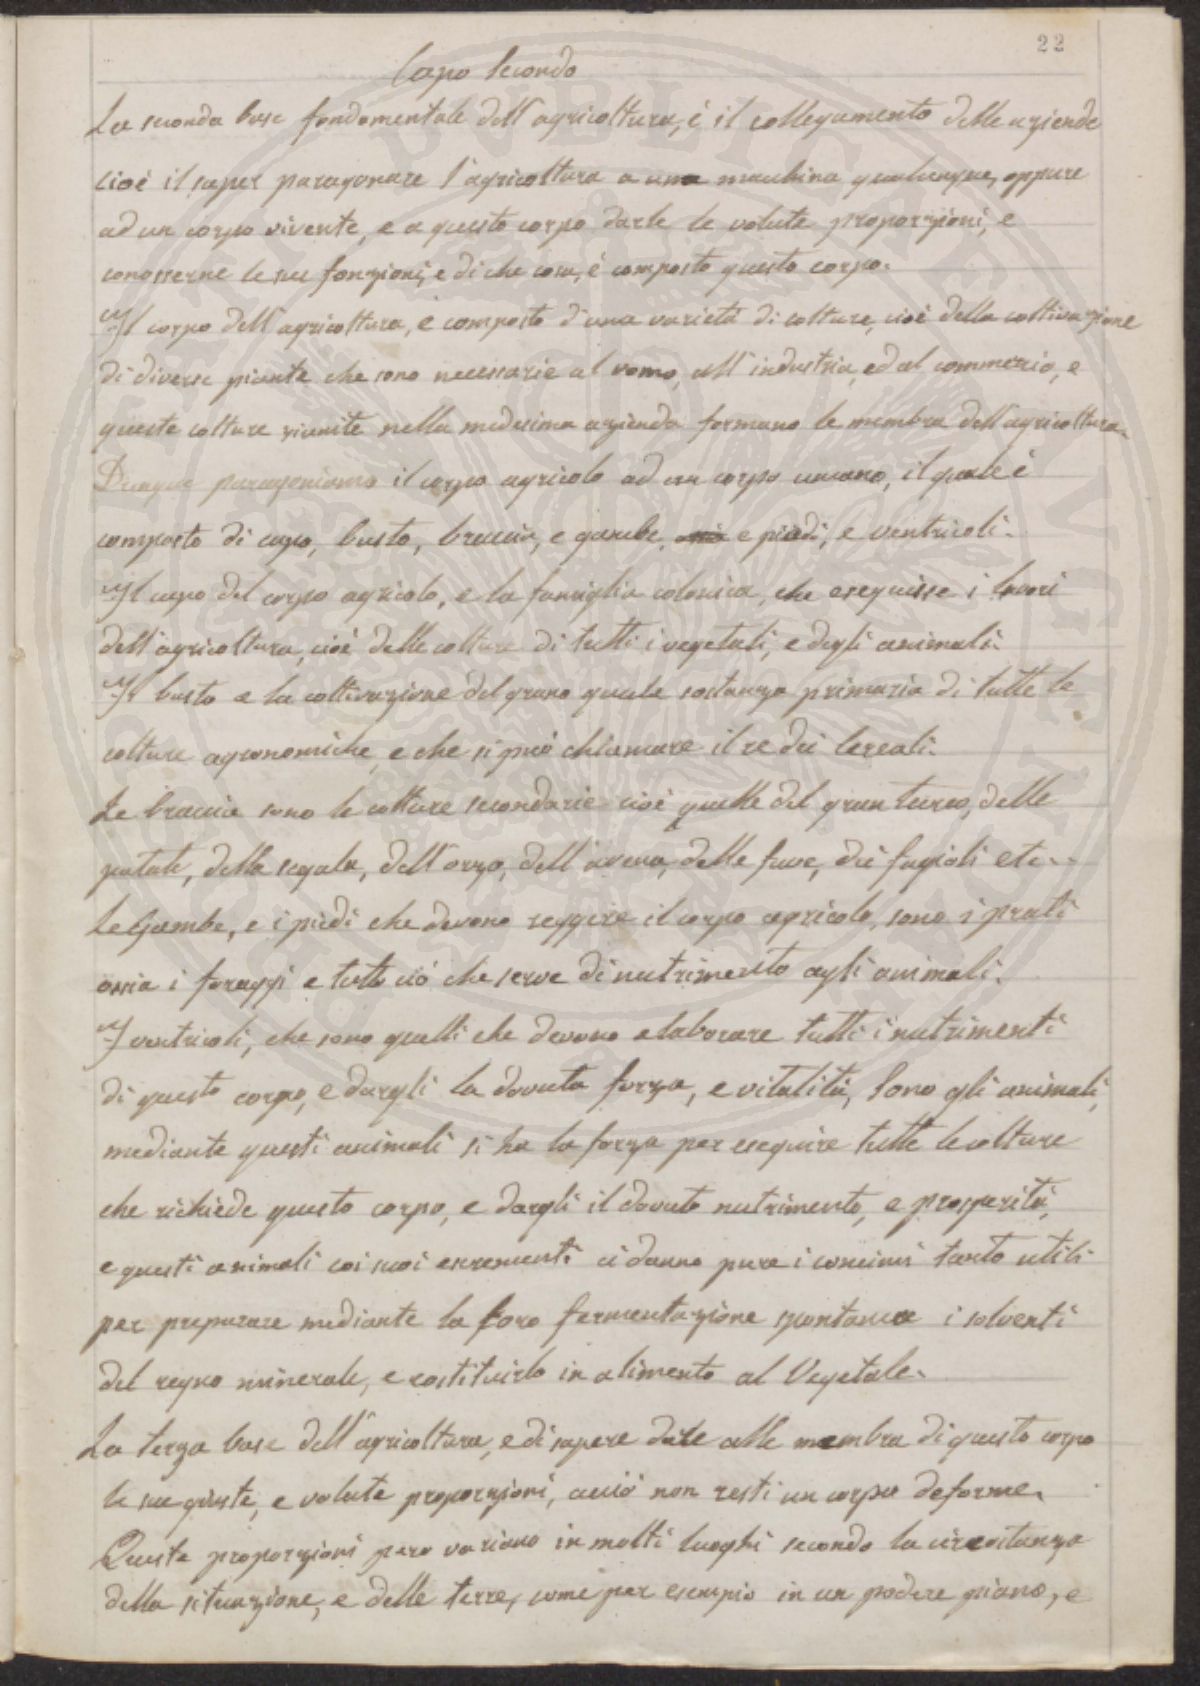 22
Capo Secondo
La seconda base fondamentale dell'agricoltura, è il collegamento delle aziende
cioè il saper paragonare l'agricoltura a una macchina qualunque, oppure
ad un corpo vivente, e a questo corpo darle le volute proporzioni, e
conosserne le sue fonzioni, e di che cosa, è composto questo corpo.
Il corpo dell'agricoltura, è composto d'una varietà di colture, cioè della coltivazione
di diverse piante che sono necessarie al vomo, all'industria, ed al commercio, e
queste colture riunite nella medesima azienda formano le membra dell'agricoltura.
Dunque paragoniamo il corpo agricolo ad un corpo umano, il quale è
composto di capo, busto, braccia, e gambe, e piedi, e ventricoli.
Il capo del corpo agricolo, e la famiglia colonica, che eseguisse i lavori
dell'agricoltura, cioè delle colture di tutti i vegetali, e degli animali.
Il busto e la coltivazione del grano quale sostanza primaria di tutte le
colture agronomiche, e che si può chiamare il re dei Cereali.
Le braccia sono le colture secondarie cioè quelle del gran turco, delle
patate, della segala, dell'orzo, dell'avena, delle fave, dei fagioli etc..
Le Gambe, e i piedi che devono reggere il corpo agricolo, sono i prati
ossia i foraggi e tutto ciò che serve di nutrimento agli animali.
I ventricoli, che sono quelli che devono elaborare tutti i nutrimenti
di questo corpo, e dargli la dovuta forza, e vitalità, Sono gli animali,
mediante questi animali si ha la forza per eseguire tutte le colture
che richiede questo corpo, e dargli il dovuto nutrimento, e prosperità,
e questi animali coi suoi escrementi ci danno pure i concimi tanto utili
per preparare mediante la loro fermentazione spontanea i solventi
del regno minerale, e costituirlo in alimento al Vegetale.
La terza base dell'agricoltura, e di sapere date alle membra di questo corpo
le sue giuste, e volute proporzioni, acciò non resti un corpo deforme.
Queste proporzioni però variano in molti luoghi secondo la circostanza
della situazione, e delle terre, come per esempio in un podere piano, e